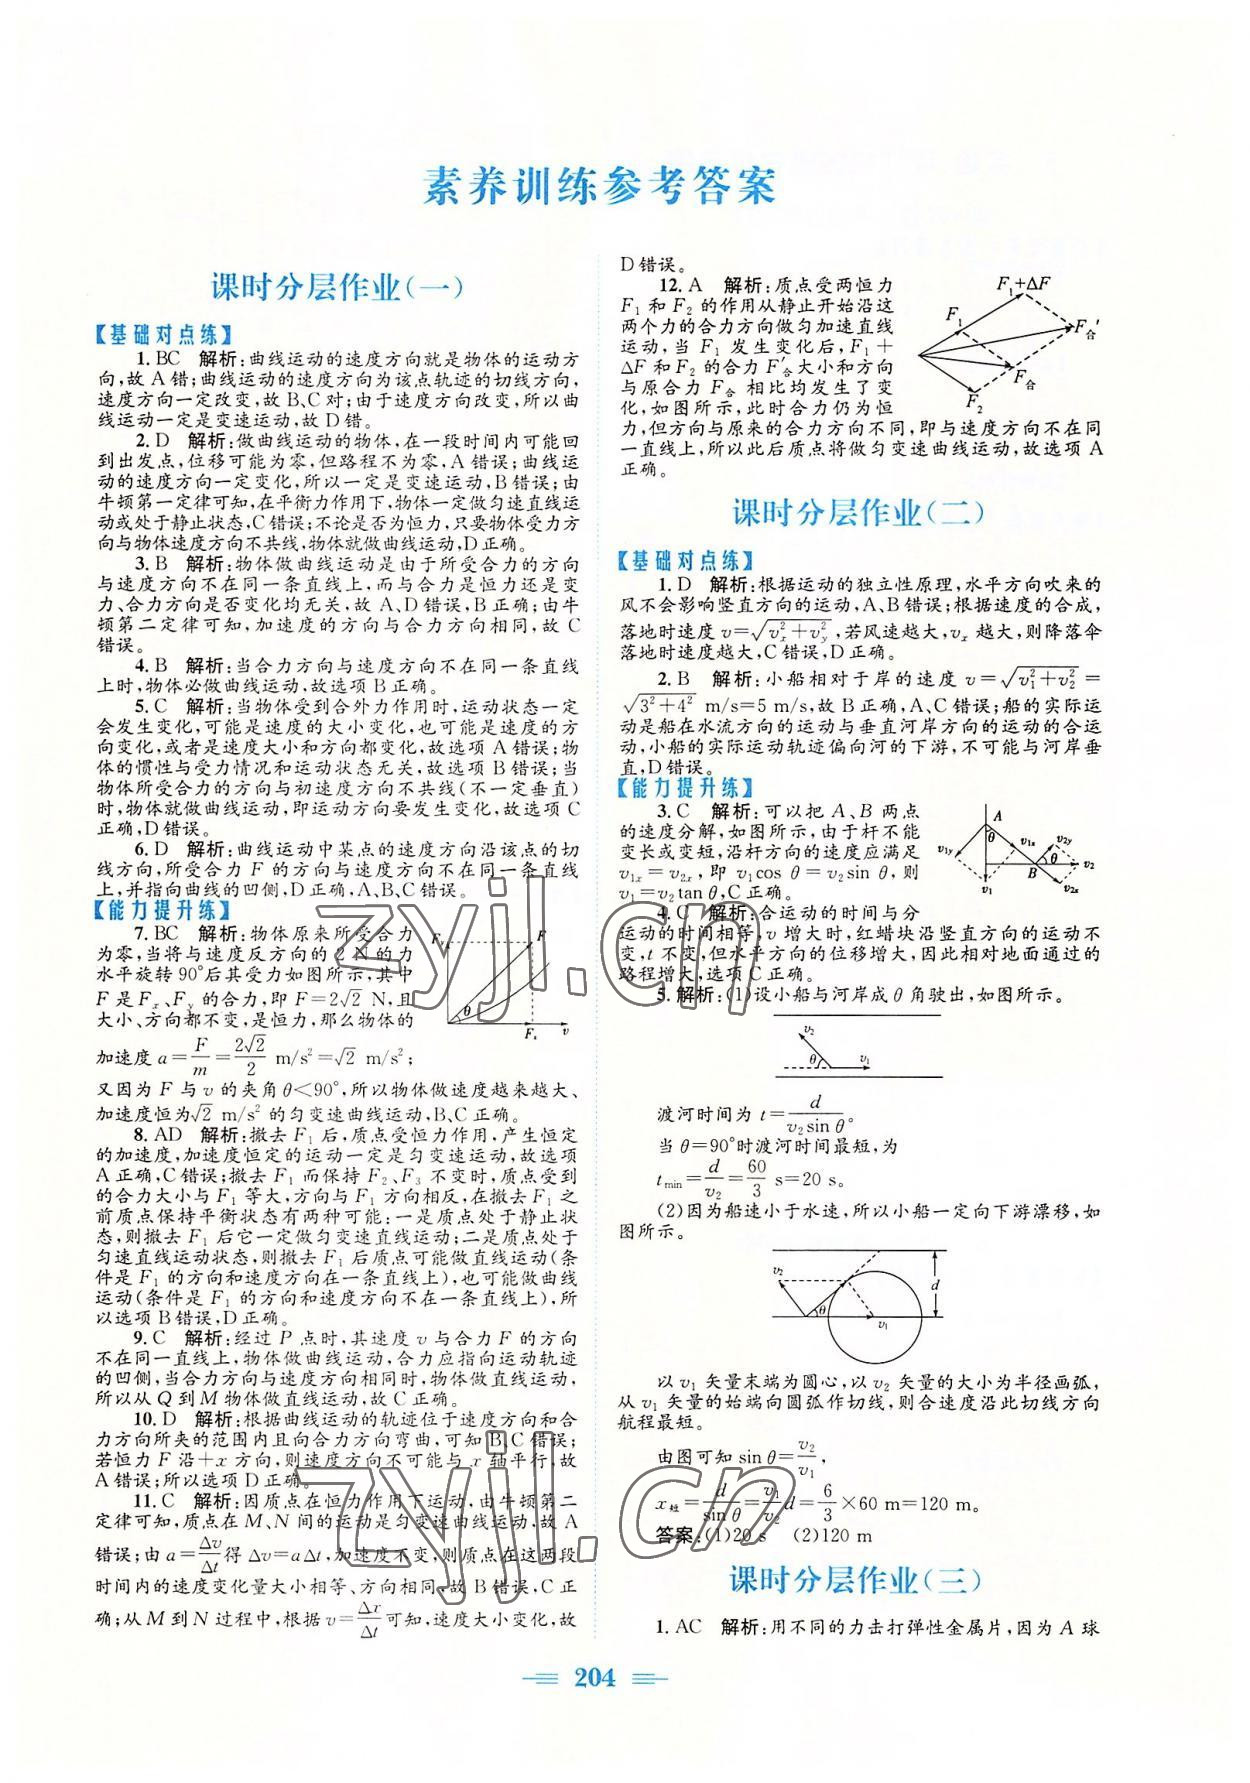 素养训练参考答案
课时分层作业(一)
【基础对点练】
1. BC 解析:曲线运动的速度方向就是物体的运动方
向,故 A 错;曲线运动的速度方向为该点轨迹的切线方向,
速度方向一定改变,故 B、C 对;由于速度方向改变,所以曲
线运动一定是变速运动,故 D 错。
2. D 解析:做曲线运动的物体,在一段时间内可能回
到出发点,位移可能为零,但路程不为零,A 错误;曲线运
动的速度方向一定变化,所以一定是变速运动,B 错误;由
牛顿第一定律可知,在平衡力作用下,物体一定做匀速直线运
动或处于静止状态,C 错误;不论是否为恒力,只要物体受力方
向与物体速度方向不共线,物体就做曲线运动,D 正确。
3. B 解析:物体做曲线运动是由于所受合力的方向
与速度方向不在同一条直线上,而与合力是恒力还是变
力、合力方向是否变化均无关,故 A、D 错误,B 正确;由牛
顿第二定律可知,加速度的方向与合力方向相同,故 C
错误。
4. B 解析:当合力方向与速度方向不在同一条直线
上时,物体必做曲线运动,故选项 B 正确。
5. C 解析:当物体受到合外力作用时,运动状态一定
会发生变化,可能是速度的大小变化,也可能是速度的方
向变化,或者是速度大小和方向都变化,故选项 A 错误;物
体的惯性与受力情况和运动状态无关,故选项 B 错误;当
物体所受合力的方向与初速度方向不共线(不一定垂直)
时,物体就做曲线运动,即运动方向要发生变化,故选项 C
正确,D 错误。
6. D 解析:曲线运动中某点的速度方向沿该点的切
线方向,所受合力 F 的方向与速度方向不在同一条直线
上,并指向曲线的凹侧,D 正确,A、B、C 错误。
【能力提升练】
7. BC 解析:物体原来所受合力
为零,当将与速度反方向的 2 N 的力
水平旋转 90°后其受力如图所示,其中
F 是 Fx、Fy 的合力,即 F=2√2 N,且
大小、方向都不变,是恒力,那么物体的
Fy F θ Fx v
加速度 a=F/m=2√2/2 m/s²=√2 m/s²;
又因为 F 与 v 的夹角 θ<90°,所以物体做速度越来越大、
加速度恒为√2 m/s² 的匀变速曲线运动,B、C 正确。
8. AD 解析:撤去 F₁ 后,质点受恒力作用,产生恒定
的加速度,加速度恒定的运动一定是匀变速运动,故选项
A 正确,C 错误;撤去 F₁ 而保持 F₂、F₃ 不变时,质点受到
的合力大小与 F₁ 等大,方向与 F₁ 方向相反,在撤去 F₁ 之
前质点保持平衡状态有两种可能:一是质点处于静止状
态,则撤去 F₁ 后它一定做匀变速直线运动;二是质点处于
匀速直线运动状态,则撤去 F₁ 后质点可能做直线运动(条
件是 F₁ 的方向和速度方向在一条直线上),也可能做曲线
运动(条件是 F₁ 的方向和速度方向不在一条直线上),所
以选项 B 错误,D 正确。
9. C 解析:经过 P 点时,其速度 v 与合力 F 的方向
不在同一直线上,物体做曲线运动,合力应指向运动轨迹
的凹侧,当合力方向与速度方向相同时,物体做直线运动,
所以从 Q 到 M 物体做直线运动,故 C 正确。
10. D 解析:根据曲线运动的轨迹位于速度方向和合
力方向所夹的范围内且向合力方向弯曲,可知 B、C 错误;
若恒力 F 沿+x 方向,则速度方向不可能与 x 轴平行,故
A 错误;所以选项 D 正确。
11. C 解析:因质点在恒力作用下运动,由牛顿第二
定律可知,质点在 M、N 间的运动是匀变速曲线运动,故 A
错误;由 a=Δv/Δt得 Δv=aΔt,加速度不变,则质点在这两段
时间内的速度变化量大小相等、方向相同,故 B 错误,C 正
确;从 M 到 N 过程中,根据 v=Δx/Δt可知,速度大小变化,故
D 错误。
12. A 解析:质点受两恒力
F₁ 和 F₂ 的作用从静止开始沿这
两个力的合力方向做匀加速直线
运动,当 F₁ 发生变化后,F₁+
ΔF 和 F₂ 的合力 F′合大小和方向
与原合力 F合 相比均发生了变
化,如图所示,此时合力仍为恒
力,但方向与原来的合力方向不同,即与速度方向不在同
一直线上,所以此后质点将做匀变速曲线运动,故选项 A
正确。
F₁+ΔF F₁ F合′ F合 F₂
课时分层作业(二)
【基础对点练】
1. D 解析:根据运动的独立性原理,水平方向吹来的
风不会影响竖直方向的运动,A、B 错误;根据速度的合成,
落地时速度 v=√(vx²+vy²),若风速越大,vx 越大,则降落伞
落地时速度越大,C 错误,D 正确。
2. B 解析:小船相对于岸的速度 v=√(v₁²+v₂²)=
√(3²+4²) m/s=5 m/s,故 B 正确,A、C 错误;船的实际运
动是船在水流方向的运动与垂直河岸方向的运动的合运
动,小船的实际运动轨迹偏向河的下游,不可能与河岸垂
直,D 错误。
【能力提升练】
3. C 解析:可以把 A、B 两点
的速度分解,如图所示,由于杆不能
变长或变短,沿杆方向的速度应满足
v₁ₓ=v₂ₓ,即 v₁cos θ=v₂sin θ,则
v₁=v₂tan θ,C 正确。
A θ v₁y v₁x v₂y θ v₂ B v₁ v₂x
4. C 解析:合运动的时间与分
运动的时间相等,v 增大时,红蜡块沿竖直方向的运动不
变,t 不变,但水平方向的位移增大,因此相对地面通过的
路程增大,选项 C 正确。
5. 解析:(1)设小船与河岸成 θ 角驶出,如图所示。
v₂ θ v₁
渡河时间为 t=d/(v₂sin θ)。
当 θ=90°时渡河时间最短,为
tmin=d/v₂=60/3 s=20 s。
(2)因为船速小于水速,所以小船一定向下游漂移,如
图所示。
v₂ θ v₁ d
以 v₁ 矢量末端为圆心,以 v₂ 矢量的大小为半径画弧,
从 v₁ 矢量的始端向圆弧作切线,则合速度沿此切线方向
航程最短。
由图可知 sin θ=v₂/v₁,
x短=d/sin θ=v₁/v₂ d=6/3×60 m=120 m。
答案:(1)20 s (2)120 m
课时分层作业(三)
1. AC 解析:用不同的力击打弹性金属片,因为 A 球
204
zyjl.cn
zyjl.cn